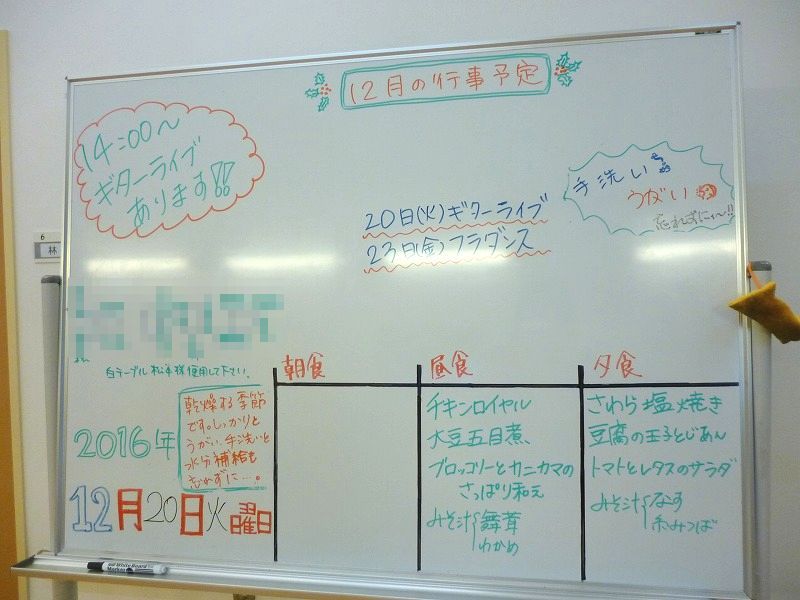 12月の行事予定
14:00〜
ギターライブ
あります!!
手洗い
うがい
忘れずに〜!!
20日(火)ギターライブ
23日(金)フラダンス
6
林
白テーブル 松本様使用して下さい。
乾燥する季節
です。しっかりと
うがい、手洗いと
水分補給を
忘れずに…。
2016年
12月20日火曜日
朝食
昼食
チキンロイヤル
大豆五目煮、
ブロッコリーとカニカマの
さっぱり和え
みそ汁 舞茸
わかめ
夕食
さわら塩焼き
豆腐の玉子とじあん
トマトとレタスのサラダ
みそ汁 なす
糸みつば
White Board
Marker